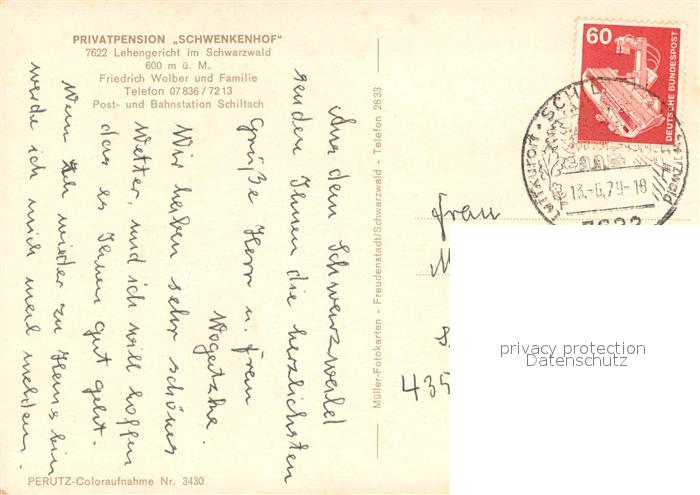 PRIVATPENSION „SCHWENKENHOF"
7622 Lehengericht im Schwarzwald
600 m ü. M.
Friedrich Wolber und Familie
Telefon 07836/7213
Post- und Bahnstation Schiltach
Aus dem Schwarzwald
senden Ihnen die herzlichsten
Grüße Herr u. Frau
Wir haben sehr schönes
Wetter, und ich will hoffen
das es Ihnen gut geht.
Wenn ich wieder zu Hause bin
werde ich mich mal melden.
PERUTZ-Coloraufnahme Nr. 3430
Müller-Fotokarten - Freudenstadt/Schwarzwald - Telefon 2833
60
DEUTSCHE BUNDESPOST
Luftkurort · SCHIL
13.-6.79-18
7622
Frau
435
privacy protection
Datenschutz